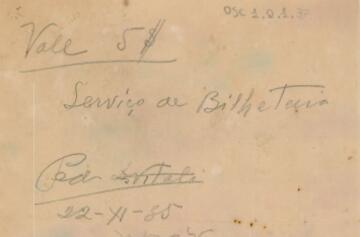 OSC 1.0.1.37
Vale 5$
Serviço de Bilheteria
22-XI-85